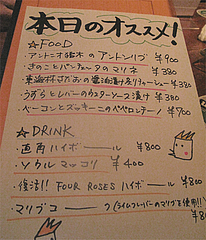 本日のオススメ!
☆FOOD
・アントニオ猪木のアントンリブ ¥900
・きのことパンチェッタのマリネ ¥380
の醤油漬け ¥380
・うずらとレバーのウスターソース漬け ¥380
・ベーコンとズッキーニのペペロンチーノ ¥700
☆DRINK
・直角ハイボール ¥800
・ソウルマッコリ ¥400
・復活!! FOUR ROSES ハイボール ¥800
・マリブコーク(ライムフレーバーのマリブを使用!!) ¥800